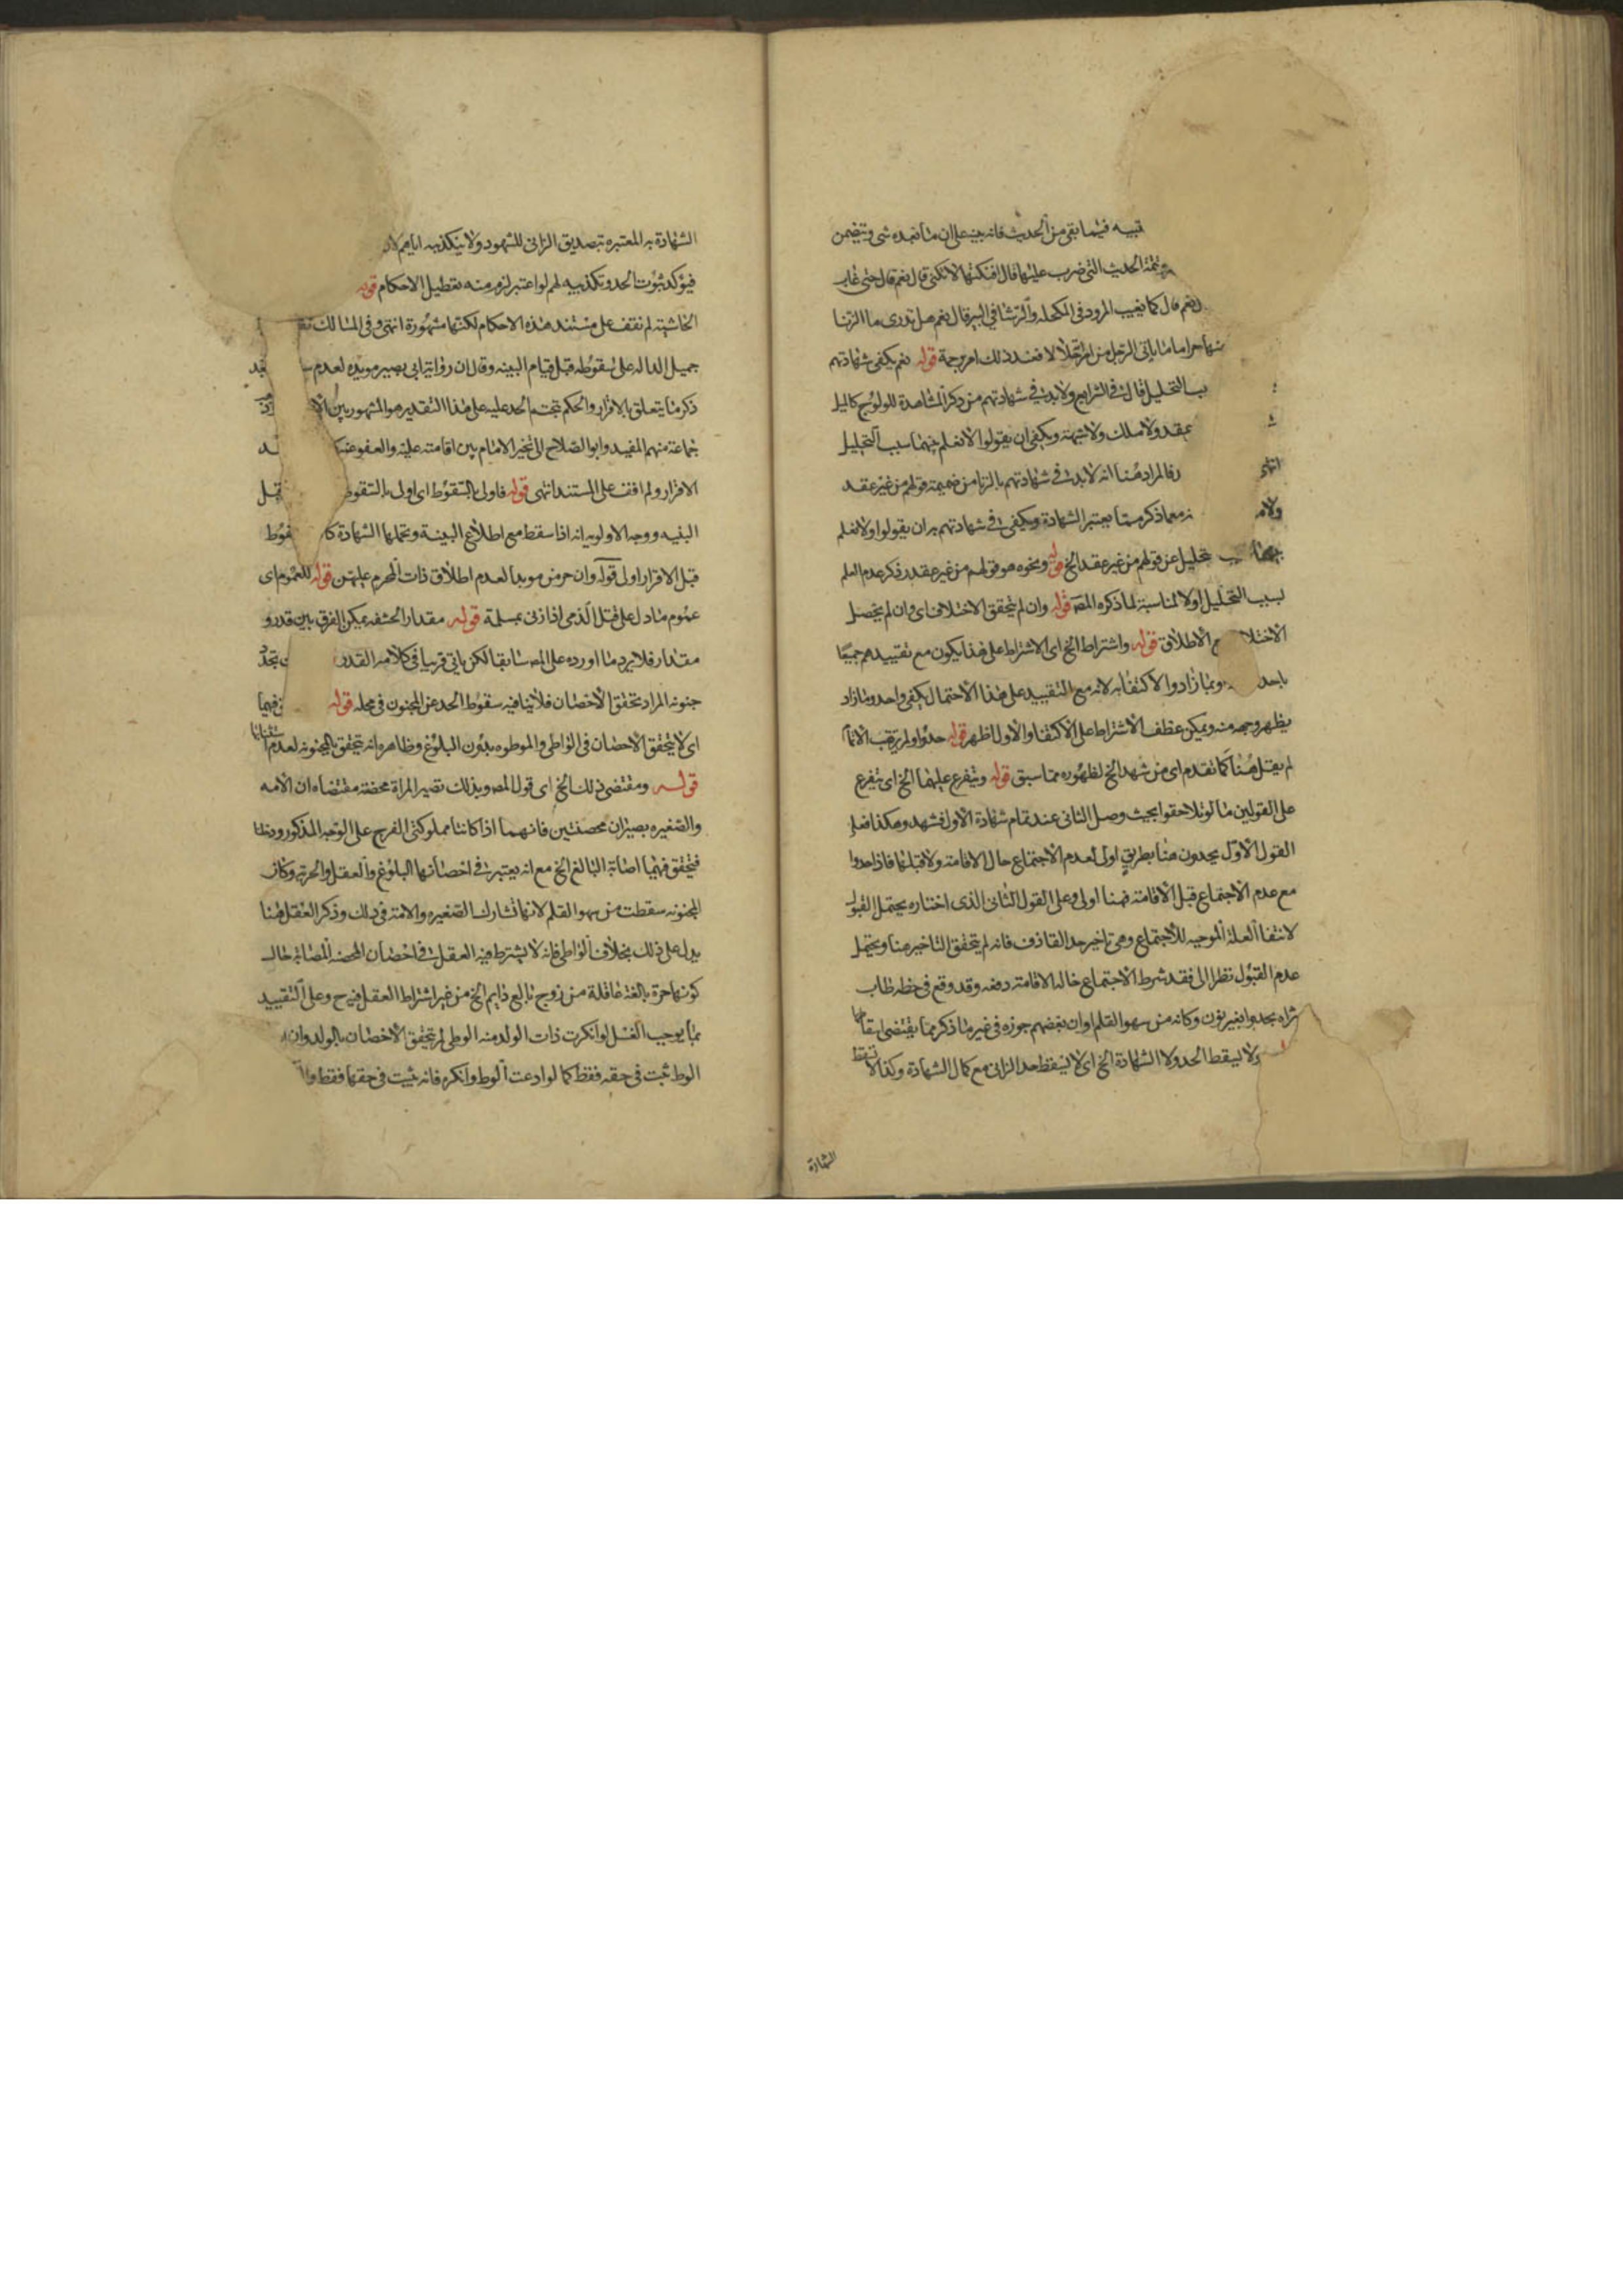 تبيه فيما بقى من الحديث فانه بينه على ان ما نعده شى ويتضمن
وتتمة الحديث التى ضرب عليها قال افنكتها لا تكنى قال نعم قال حتى غاب
نعم قال كما يغيب المرود فى المكحله والرشا فى البير قال نعم هل تدرى ما الزنا
منها حراما ما ياتى الرجل من امرأته حلالا فعند ذلك امر برجمه قوله نعم يكفى شهادتهم
بب التحليل قال فى الشرايع ولا بد فى شهادتهم من ذكر المشاهدة للولوج كالميل
عقد ولا ملك ولا شبهة ويكفى ان يقولوا لا نعلم بينهما سبب التحليل انتهى
فالمراد هنا انه لا بد فى شهادتهم بالزنا من ضميمة قولهم من غير عقد
ولا مع ما ذكر مما يعتبر الشهادة ويكفى فى شهادتهم به ان يقولوا ولا نعلم
بينهما تحليل عن قولهم من غير عقد الخ قوله ونحوه هو قولهم من غير عقد ذكر عدم العلم
لسبب التحليل اولا لمناسبة لما ذكره المص قوله وان لم يتحقق الاختلاف اى وان لم يحصل
الاختلا الاطلاق قوله واشتراط الخ اى الاشتراط على هذا يكون مع تقييدهم جميعا
باحد وبما زادوا الاكتفا به لانه مع التقييد على هذا الاحتمال يكفى واحد وما زاد
يظهر وجهه منه ويمكن عطف الاشتراط على الاكتفا والاول اظهر قوله حدوا ولم يرتقب الاتمام
لم يقل هنا كما تقدم اى من شهد الخ لظهوره مما سبق قوله ويتفرع عليهما الخ اى يتفرع
على القولين ما لو تلاحقوا بحيث وصل الثانى عند تمام شهادة الاول فشهد وهكذا فعلى
القول الاول يحدون هنا بطريق اولى لعدم الاجتماع حال الاقامة ولا قبلها فاذا حدوا
مع عدم الاجتماع قبل الاقامة فهنا اولى وعلى القول الثانى الذى اختاره يحتمل القبول
لانتفا العلة الموجبه للاجتماع وهى تاخير حد القاذف فانه لم يتحقق التاخير هنا ويحتمل
عدم القبول نظرا الى فقد شرط الاجتماع حاله الاقامة دفعه وقد وقع فى خطه طاب
ثراه يحدوا بغير نون وكانه من سهو القلم وان بعضهم جوزه فى غير ما ذكر مما يقتضى اسقاطها
ولا يسقط الحد ولا الشهادة الخ اى لا يسقط حد الزانى مع كمال الشهادة وكذا لا تسقط
الشهادة
الشهادة به المعتبره بتصديق الزانى للشهود ولا بتكذيبه اياهم لان
فيؤكد ثبوت الحد وتكذيبه لهم لو اعتبر لزم منه تعطيل الاحكام قوله
الحاشية لم نقف على مستند هذه الاحكام لكنها مشهورة انتهى وفى المسالك
جميل الداله على سقوطه قبل قيام البينه وقال ان رواية ابى بصير مويده لعدم
ذكر ما يتعلق بالاقرار والحكم بتحتم الحد عليه على هذا التقدير هو المشهور بين
جماعة منهم المفيد وابو الصلاح الى تخير الامام بين اقامته عليه والعفو عنه
الاقرار ولم اقف على المستند انتهى قوله فاولى بالسقوط اى اولى بالسقوط قبل
البنيه ووجه الاولويه انه اذا سقط مع اطلاع البينة وتحملها الشهادة كا
قبل الاقرار اولى قوله وان حرمن موبدا لعدم اطلاق ذات المحرم عليهن قوله للعموم اى
عموم ما دل على قتل الذمى اذا زنى بمسلمة قوله مقدار الحشفه يمكن الفرق بين قدر و
مقدار فلا يرد ما اورده على المص سابقا لكن ياتى قريبا فى كلامه القدر
جنونه المراد تحقق الاحصان فلا ينافيه سقوط الحد عن المجنون فى محله قوله فيهما
اى لا يتحقق الاحصان فى الواطى والموطوه بدون البلوغ وظاهره انه يتحقق بالمجنونه لعدم استثنائها
قوله ومقتضى ذلك الخ اى قول المص وبذلك تصير المراة محصنة مقتضاه ان الامه
والصغيره يصيران محصنتين فانهما اذا كانتا مملوكتى الفرج على الوجه المذكور وطئا
فتحقق فيهما اصابة البالغ الخ مع انه يعتبر فى احصانها البلوغ والعقل والحرية وكان
المجنونه سقطت من سهو القلم لانها تشارك الصغيره والامة فى ذلك وذكر العقل هنا
يدل على ذلك بخلاف الواطى فانه لا يشترط فيه العقل فى احصان المحصنه المصابة حال
كونها حرة بالغة عاقلة من زوج بالغ دايم الخ من غير اشتراط العقل فيه ح وعلى التقييد
بما يوجب الغسل لو انكرت ذات الولد منه الوطى لم يتحقق الاحصان بالولد وان
الوط ثبت فى حقه فقط كما لو ادعت الوط وانكره فانه يثبت فى حقها فقط